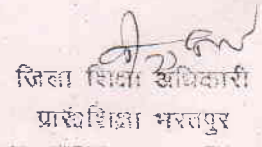 जिला शिक्षा अधिकारी
प्रारंशिक्षा भरतपुर